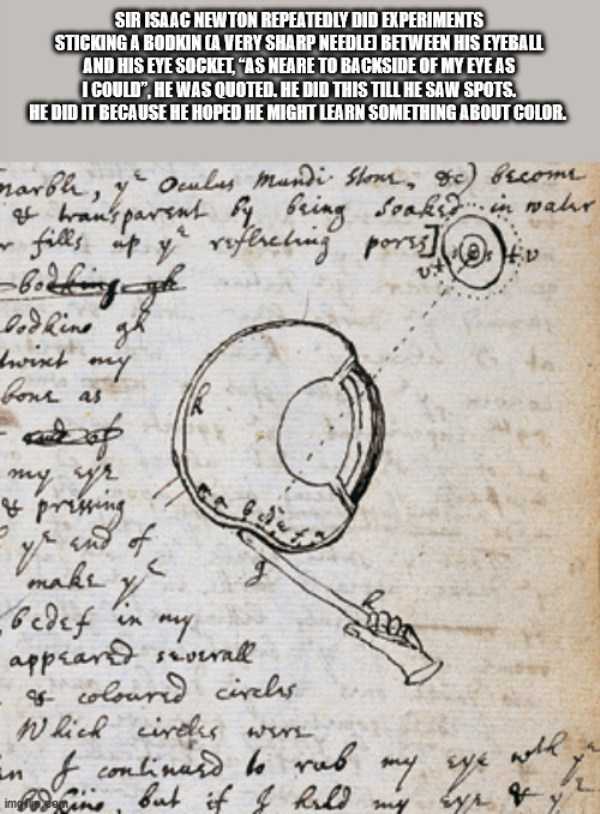 SIR ISAAC NEWTON REPEATEDLY DID EXPERIMENTS
STICKING A BODKIN (A VERY SHARP NEEDLE) BETWEEN HIS EYEBALL
AND HIS EYE SOCKET, "AS NEARE TO BACKSIDE OF MY EYE AS
I COULD", HE WAS QUOTED. HE DID THIS TILL HE SAW SPOTS.
HE DID IT BECAUSE HE HOPED HE MIGHT LEARN SOMETHING ABOUT COLOR.
marble, yᵉ Oculus Mundi stone, &c) become
& transparent by being soaked in water
fills up yᵉ reflecting pores]
bodkine gh
twixt my
bone as
my eye
& pressing
yᵉ end of
make yᵉ
bcdef in my
appeared severall
& coloured circles
Which circles were
I continued to rub my eye wth yᵉ
but if I held my eye & yᵉ
imgflip.com